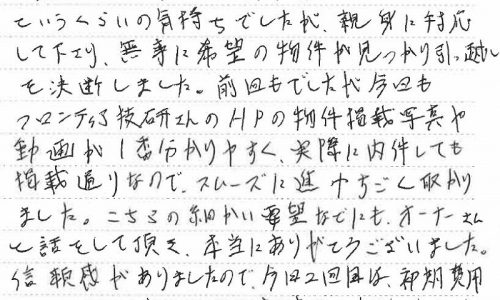 というくらいの気持ちでしたが、親身に対応
して下さり、無事に希望の物件が見つかり引っ越し
を決断しました。前回もでしたが今回も
フロンティア技研さんのHPの物件掲載写真や
動画が1番分かりやすく、実際に内件しても
掲載通りなので、スムーズに進
ました。こちらの細かい要望などにも、オーナーさん
と話をして頂き、本当にありがとうございました。
信頼感がありましたので、今回2回目は、初期費用